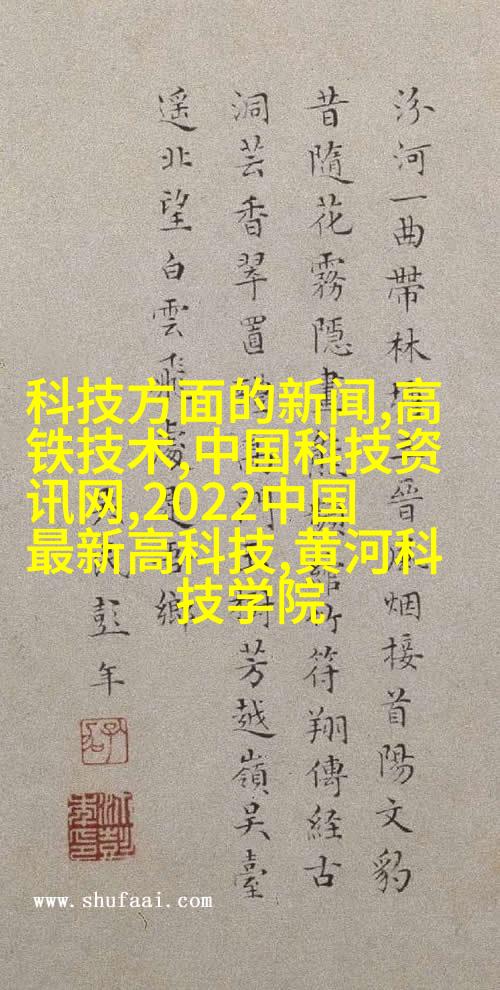 汾河一曲帶林 晉 烟接首陽文豹
昔隨花霧隱畫 竹符翔傳経古
洞芸香翠置 芳越嶺吴臺
遥北望白雲飛處 鄉
彭年
科技方面的新闻,高
铁技术,中国科技资
讯网,2022中国
最新高科技,黄河科
技学院
www.shufaai.com